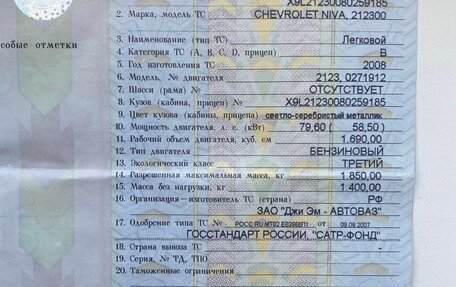 X9L21230080259185
2. Марка, модель ТС CHEVROLET NIVA, 212300
собые отметки
3. Наименование (тип ТС) Легковой
4. Категория ТС (A, B, C, D, прицеп) B
5. Год изготовления ТС 2008
6. Модель, № двигателя 2123, 0271912
7. Шасси (рама) № ОТСУТСТВУЕТ
8. Кузов (кабина, прицеп) № X9L21230080259185
9. Цвет кузова (кабины, прицепа) светло-серебристый металлик
10. Мощность двигателя, л. с. (кВт) 79,60 ( 58,50 )
11. Рабочий объем двигателя, куб. см 1,690.00
12. Тип двигателя БЕНЗИНОВЫЙ
13. Экологический класс ТРЕТИЙ
14. Разрешенная максимальная масса, кг 1,850.00
15. Масса без нагрузки, кг 1,400.00
16. Организация – изготовитель ТС (страна) РФ
ЗАО "Джи Эм - АВТОВАЗ"
17. Одобрение типа ТС № от 09.08.2007
ГОССТАНДАРТ РОССИИ, "САТР-ФОНД"
18. Страна вывоза ТС
19. Серия, № ТД, ТПО
20. Таможенные ограничения